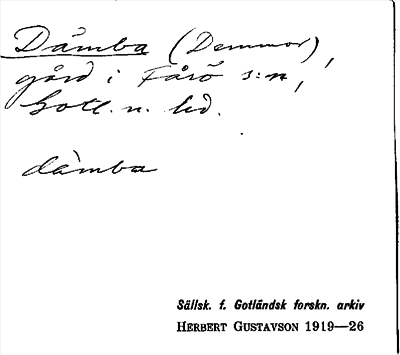 Dämba (Demmor),
gård i Fårö s:n,
Gotl. n. hd.
dämba
Sällsk. f. Gotländsk forskn. arkiv
HERBERT GUSTAVSON 1919—26